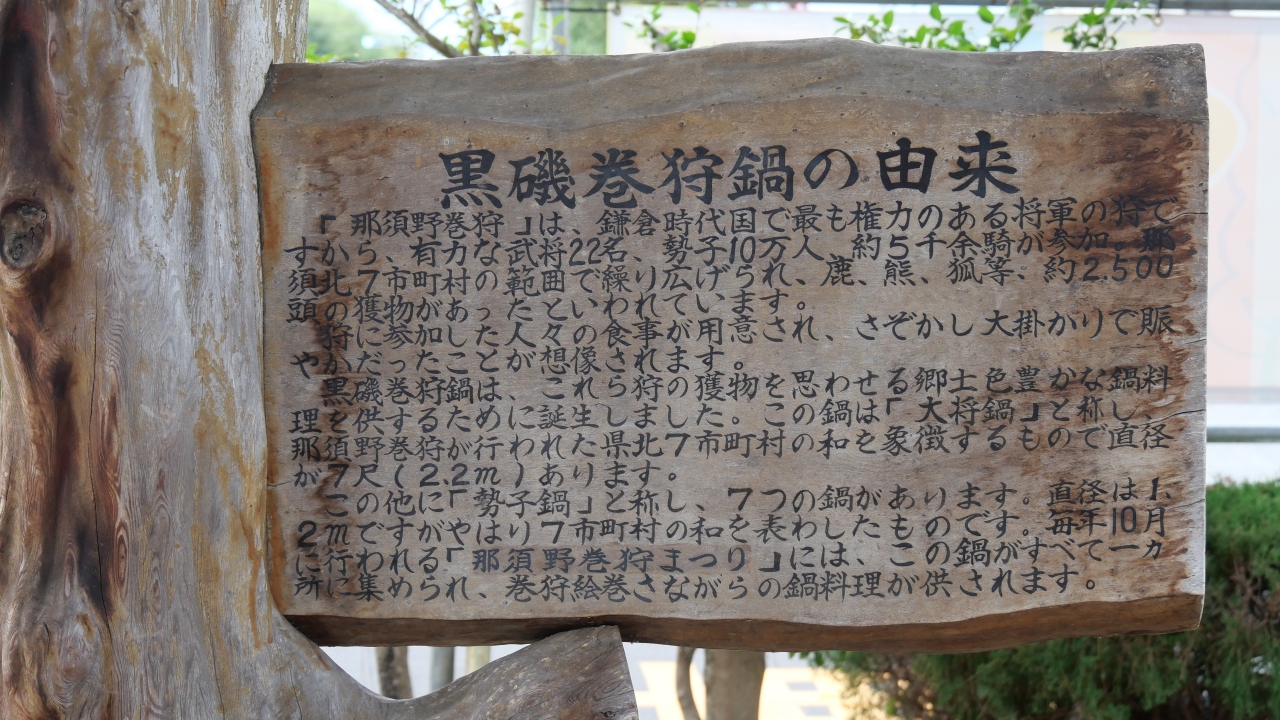 黒磯巻狩鍋の由来
「那須野巻狩」は、鎌倉時代国で最も権力のある将軍の狩で
すから、有力な武将22名、勢子10万人、約5千余騎が参加。那
須北7市町村の範囲で繰り広げられ、鹿、熊、狐等。約2.500
頭の獲物があったといわれています。
狩に参加した人々の食事が用意され、さぞかし大掛かりで賑
やかだったことが想像されます。
黒磯巻狩鍋は、これら狩の獲物を思わせる郷土色豊かな鍋料
理を供するために誕生しました。この鍋は「大将鍋」と称し、
那須野巻狩が行われた県北7市町村の和を象徴するもので直径
が7尺(2.2m)あります。
この他に「勢子鍋」と称し、7つの鍋があります。直径は1.
2mですがやはり7市町村の和を表わしたものです。毎年10月
に行われる「那須野巻狩まつり」には、この鍋がすべて一ヵ
所に集められ、巻狩絵巻さながらの鍋料理が供されます。